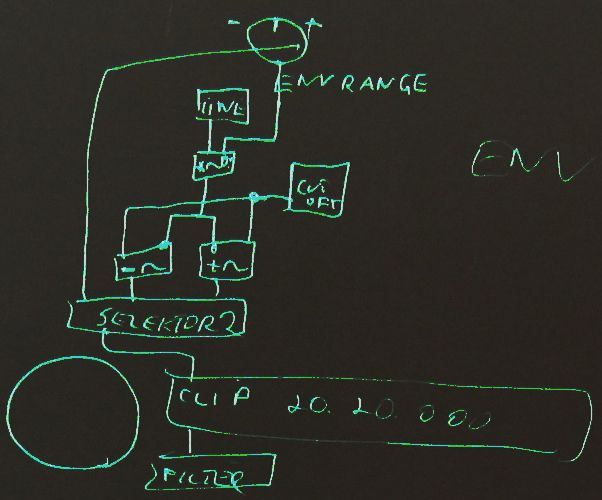 - +
ENV RANGE
LINE
*~
ENV
CUT
OFF
-~
+~
SELEKTOR2
CLIP 20. 20 000
FILTER